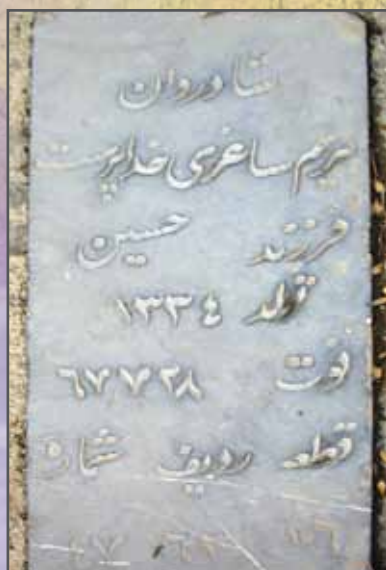 شادروان
مریم ساغری خداپرست
فرزند حسین
تولد ۱۳۳٤
فوت ٦٧ ٧ ٢٨
قطعه ردیف شماره